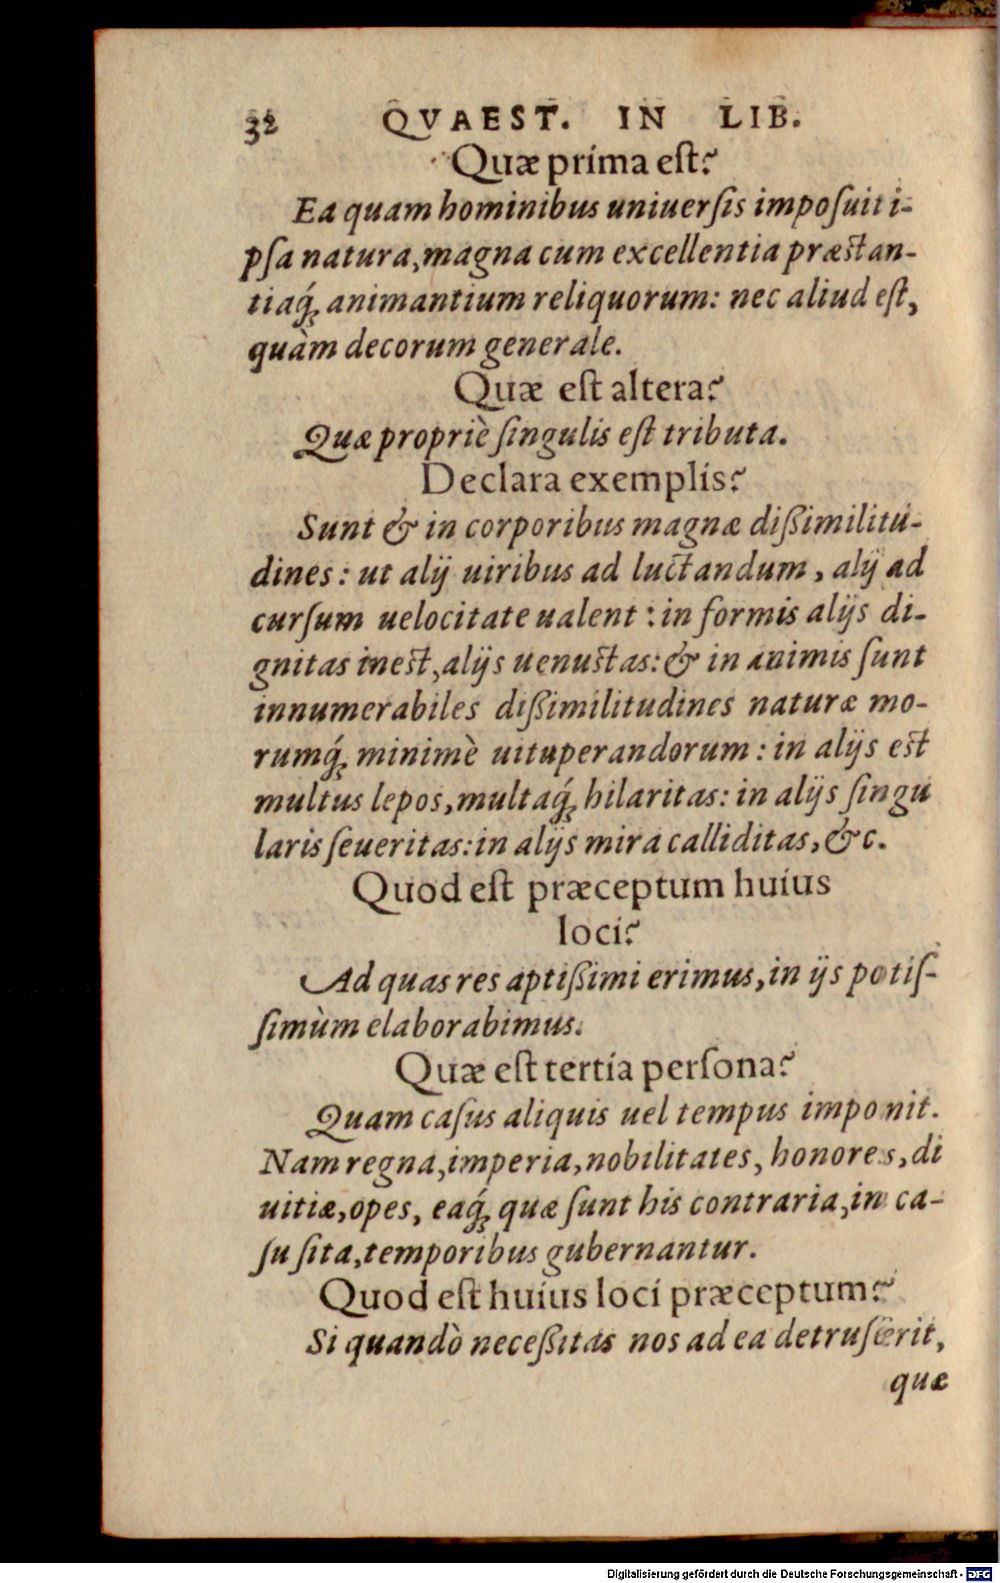 32 QVAEST. IN LIB.
Quæ prima eſt?
Ea quam hominibus uniuerſis impoſuit i-
pſa natura, magna cum excellentia præſtan-
tiaq́ꝫ animantium reliquorum: nec aliud eſt,
quàm decorum generale.
Quæ eſt altera?
Quæ propriè ſingulis eſt tributa.
Declara exemplis?
Sunt & in corporibus magnæ dißimilitu-
dines: ut alij uiribus ad luctandum, alij ad
curſum uelocitate ualent: in formis alijs di-
gnitas ineſt, alijs uenuſtas: & in animis ſunt
innumerabiles dißimilitudines naturæ mo-
rumq́ꝫ minimè uituperandorum: in alijs eſt
multus lepos, multaq́ꝫ hilaritas: in alijs ſingu
laris ſeueritas: in alijs mira calliditas, &c.
Quod eſt præceptum huius
loci?
Ad quas res aptißimi erimus, in ijs potiſ-
ſimùm elaborabimus.
Quæ eſt tertia perſona?
Quam caſus aliquis uel tempus imponit.
Nam regna, imperia, nobilitates, honores, di
uitiæ, opes, eaq́ꝫ quæ ſunt his contraria, in ca-
ſu ſita, temporibus gubernantur.
Quod eſt huius loci præceptum?
Si quandò neceßitas nos ad ea detruſerit,
quæ
Digitalisierung gefördert durch die Deutsche Forschungsgemeinschaft - DFG